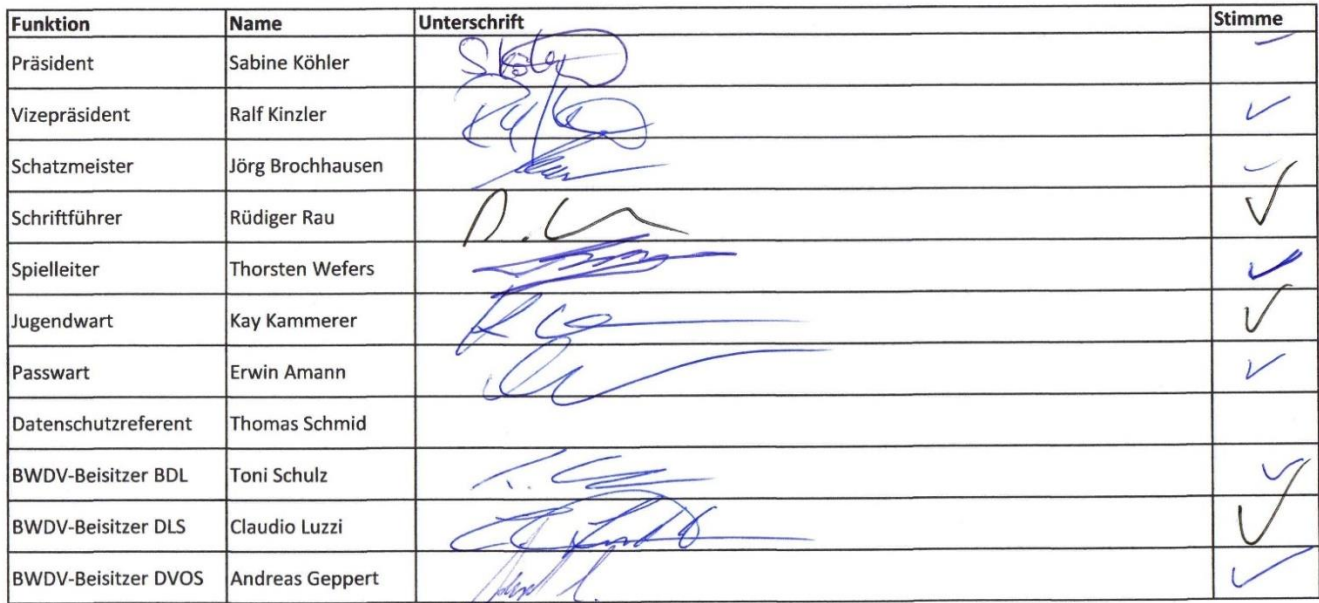 Funktion Name Unterschrift Stimme
Präsident Sabine Köhler
Vizepräsident Ralf Kinzler
Schatzmeister Jörg Brochhausen
Schriftführer Rüdiger Rau
Spielleiter Thorsten Wefers
Jugendwart Kay Kammerer
Passwart Erwin Amann
Datenschutzreferent Thomas Schmid
BWDV-Beisitzer BDL Toni Schulz
BWDV-Beisitzer DLS Claudio Luzzi
BWDV-Beisitzer DVOS Andreas Geppert